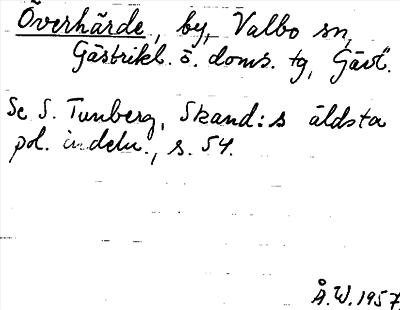 Överhärde, by, Valbo sn,
Gästrikl. ö. doms. tg, Gävl.
Se S. Tunberg, Skand:s äldsta
pol. indeln., s. 54.
Å.W. 1957.